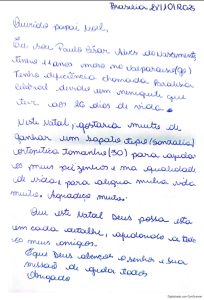 Brasília
Querido papai Noel,
Eu sou Paulo César Alves do Nascimento,
tenho 11 anos moro no Valparaíso (GO)
Tenho deficiência chamada Paralisia
Cerebral devido em meningite que
tive aos 20 dias de vida.
Neste Natal, gostaria muito de
ganhar um sapato tipo (sandália)
ortopédica tamanho (30) para ajudar
os meus pézinhos e ma qualidade
de vida e para alegrar minha vida
muito. Agradeço muito.
Que este Natal Deus possa esta
em cada detalhe, ajudando a todos
os meus amigos.
E que Deus abençoe o senhor e sua
missão de ajuda todos
Obrigado
Digitalizado com CamScanner